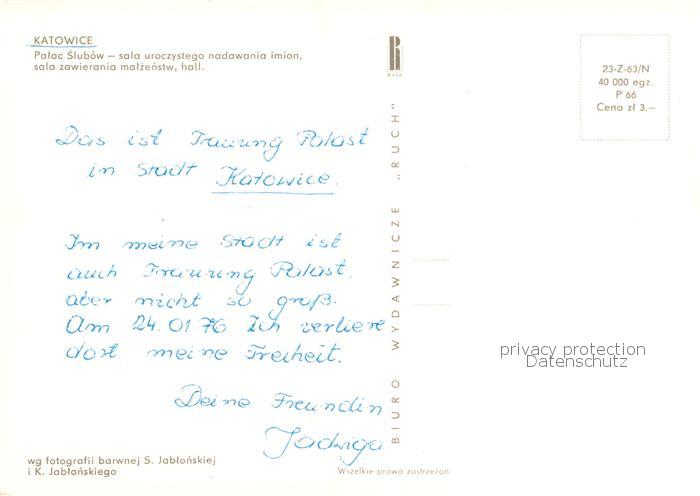 KATOWICE
Pałac Ślubów — sala uroczystego nadawania imion,
sala zawierania małżeństw, hall.
RUCH
23-Z-63/N
40 000 egz.
P 66
Cena zł 3.—
Das ist Trauung Palast
in Stadt Katowice.
Im meine Stadt ist
auch Trauung Palast,
aber nicht so groß.
Am 24.01 76 Ich verliere
dort meine Freiheit.
Deine Freundin
Jadwiga
BIURO WYDAWNICZE „RUCH"
privacy protection
Datenschutz
wg fotografii barwnej S. Jabłońskiej
i K. Jabłońskiego
Wszelkie prawa zastrzeżon